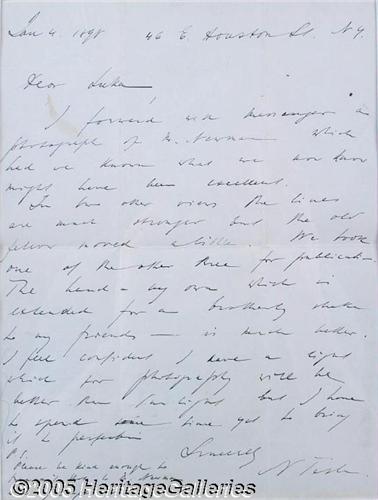 Jan 4. 1898   46 E. Houston St. N.Y.
Dear Luka,
I forward via messenger a
photograph of Mr. Newman which
had we known what we now know
might have been excellent.
In two other views the lines
are much stronger but the old
fellow moved a little. We took
one of the other three for publication.
The hand - my own which is
extended for a brotherly shake
to my friends - is much better.
I feel confident I have a light
which for photography will be
better than sunlight but I have
to spend some time yet to bring
it to perfection
Sincerely
N Tesla
P.S.
Please be kind enough to
©2005 HeritageGalleries